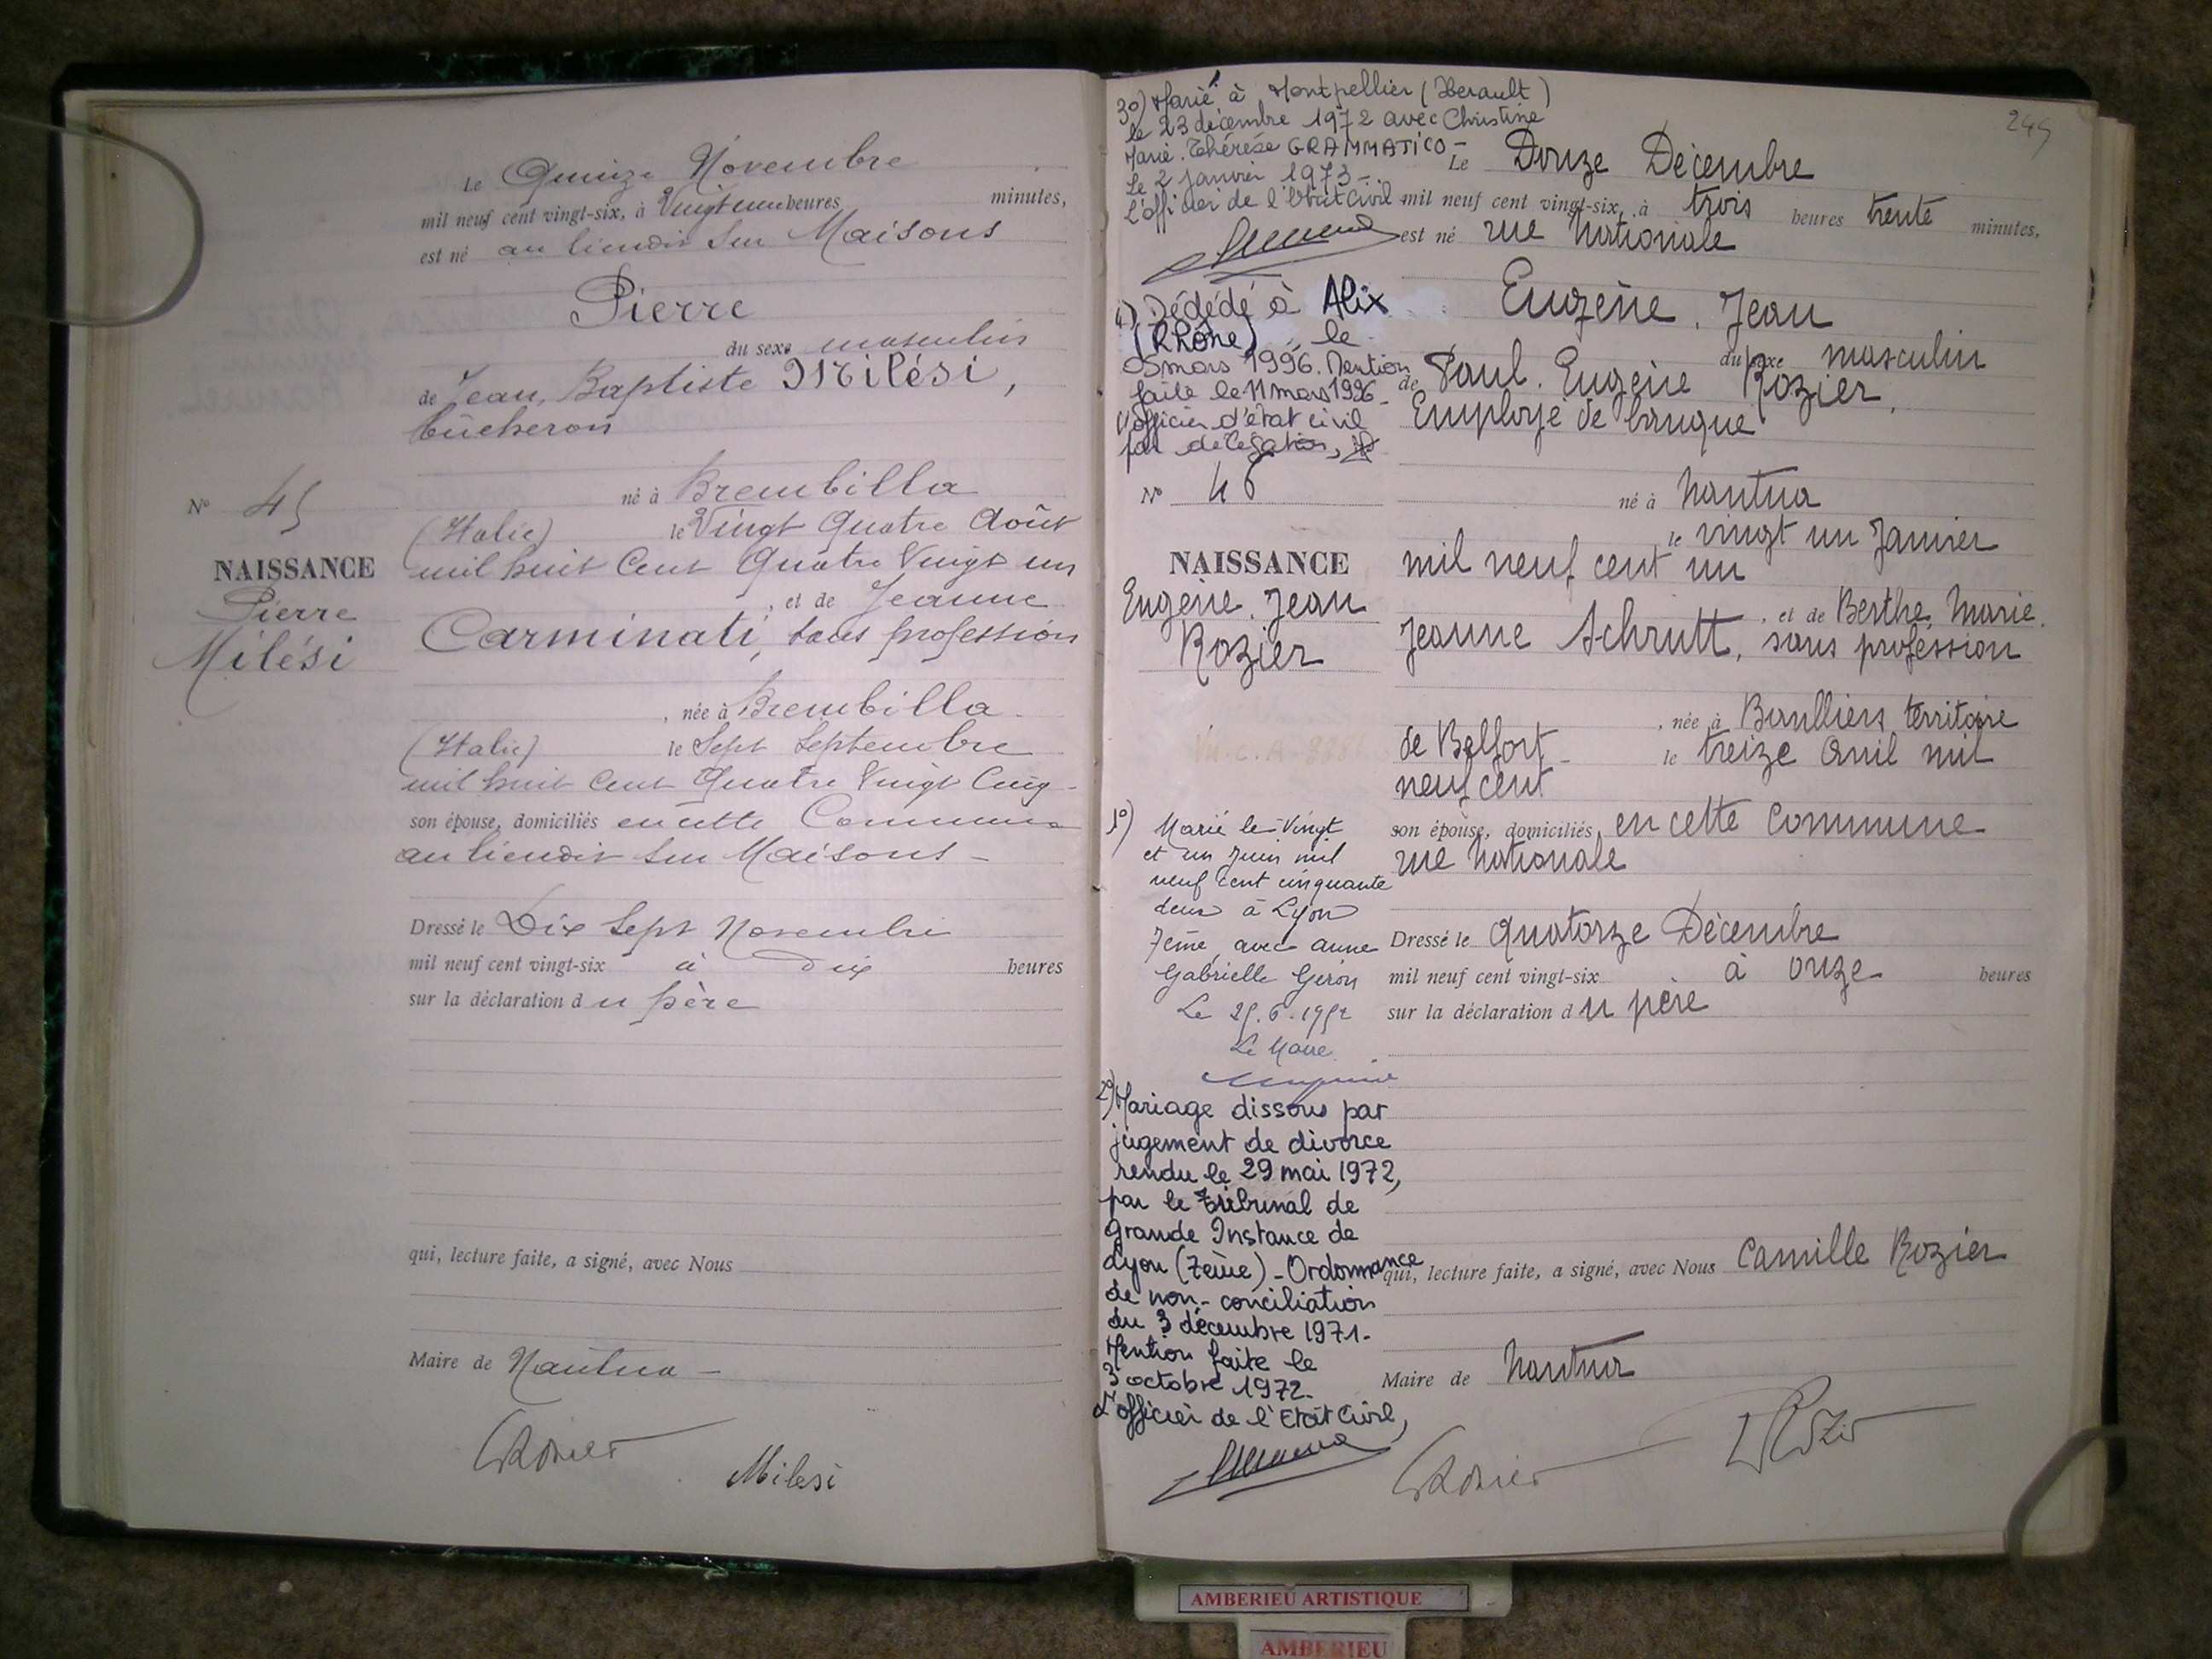 Le Quinze Novembre
mil neuf cent vingt-six, à Vingt une heures minutes,
est né au lieudit sur Maisons
Pierre
du sexe masculin
de Jean, Baptiste Milési,
bûcheron
né à Brembilla
(Italie) le Vingt Quatre Août
mil huit Cent Quatre Vingt un
, et de Jeanne
Carminati, sans profession
, née à Brembilla
(Italie) le Sept Septembre
mil huit Cent Quatre Vingt Cinq
son épouse, domiciliés en cette Commune
au lieudit sur Maisons -
Dressé le Dix Sept Novembre
mil neuf cent vingt-six à dix heures
sur la déclaration du père
qui, lecture faite, a signé, avec Nous
Maire de Nantua -
Milesi
N° 45
NAISSANCE
Pierre
Milési
249
3°) Marié à Montpellier (Herault)
le 23 décembre 1972 avec Christine
Marie. Thérèse GRAMMATICO -
Le 2 janvier 1973 -
L'officier de l'Etat Civil
4) Dédédé à Alix
(Rhône), le
05 mars 1996. Mention
faite le 11 mars 1996 -
l'officier d'état civil
par délégation,
N° 46
NAISSANCE
Eugène. Jean
Rozier
1°) Marié le Vingt
et un Juin mil
neuf cent cinquante
deux à Lyon
7ème, avec anne
Gabrielle Geron
Le 25.6.1952
Le Maire
2°) Mariage dissous par
jugement de divorce
rendu le 29 mai 1972,
par le Tribunal de
Grande Instance de
Lyon (7ème) - Ordonnance
de non-conciliation
du 3 décembre 1971.
Mention faite le
3 octobre 1972.
L'officier de l'Etat Civil,
Le Douze Décembre
mil neuf cent vingt-six, à trois heures trente minutes,
est né rue Nationale
Eugène. Jean
du sexe masculin
de Paul. Eugène Rozier,
Employé de banque
né à Nantua
le vingt un Janvier
mil neuf cent un
, et de Berthe, Marie.
Jeanne Schrutt, sans profession
, née à territoire
de Belfort le treize Avril mil
neuf cent
son épouse, domiciliés en cette commune
rue Nationale
Dressé le Quatorze Décembre
mil neuf cent vingt-six à onze heures
sur la déclaration du père
qui, lecture faite, a signé, avec Nous Camille Rozier
Maire de Nantua
AMBERIEU ARTISTIQUE
AMBERIEU